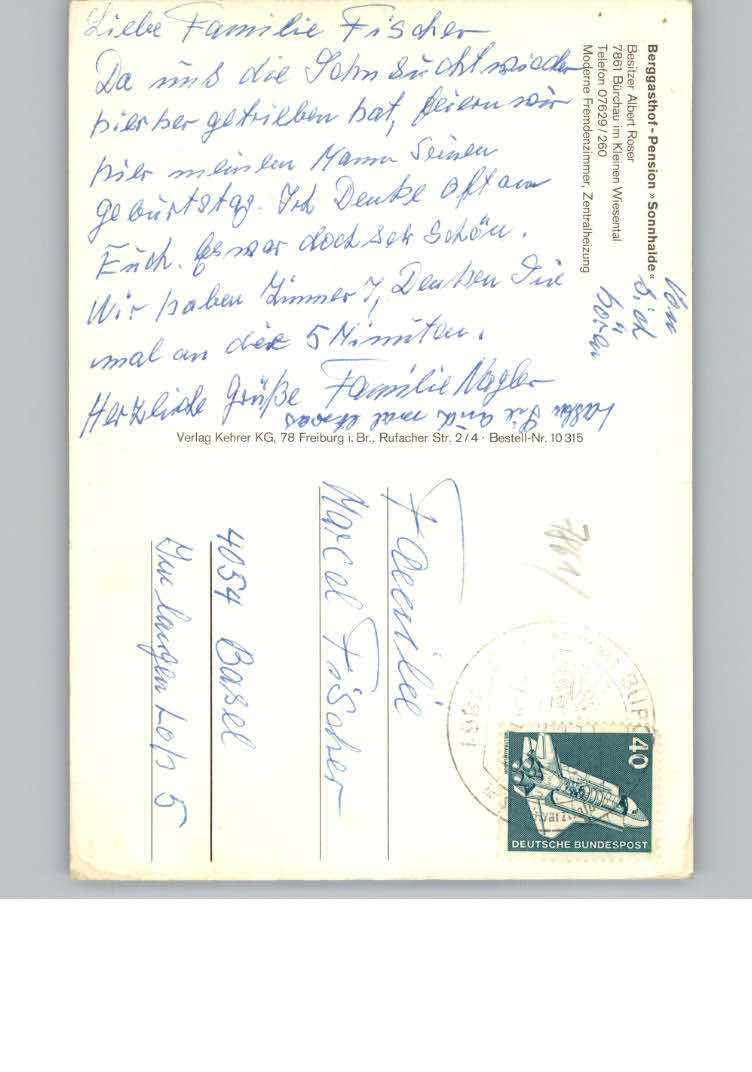 Liebe Familie Fischer
Da uns die Sehnsucht wieder
hierher getrieben hat, feiern wir
hier meinen Mann Seinen
geburtstag. Ich Denke oft an
Euch. Es war doch ser Schön.
Wir haben Zimmer 7, Denken Sie
mal an die 5 Minuten.
Herzliche Grüße Familie Nagler
Lassen Sie auch mal etwas
von
sich
hören
Berggasthof - Pension »Sonnhalde«
Besitzer Albert Roser
7861 Bürchau im Kleinen Wiesental
Telefon 07629/260
Moderne Fremdenzimmer, Zentralheizung
Verlag Kehrer KG, 78 Freiburg i. Br., Rufacher Str. 2/4 · Bestell-Nr. 10 315
Familie
Marcel Fischer
4054 Basel
Im langen Loh 5
7861
40
DEUTSCHE BUNDESPOST